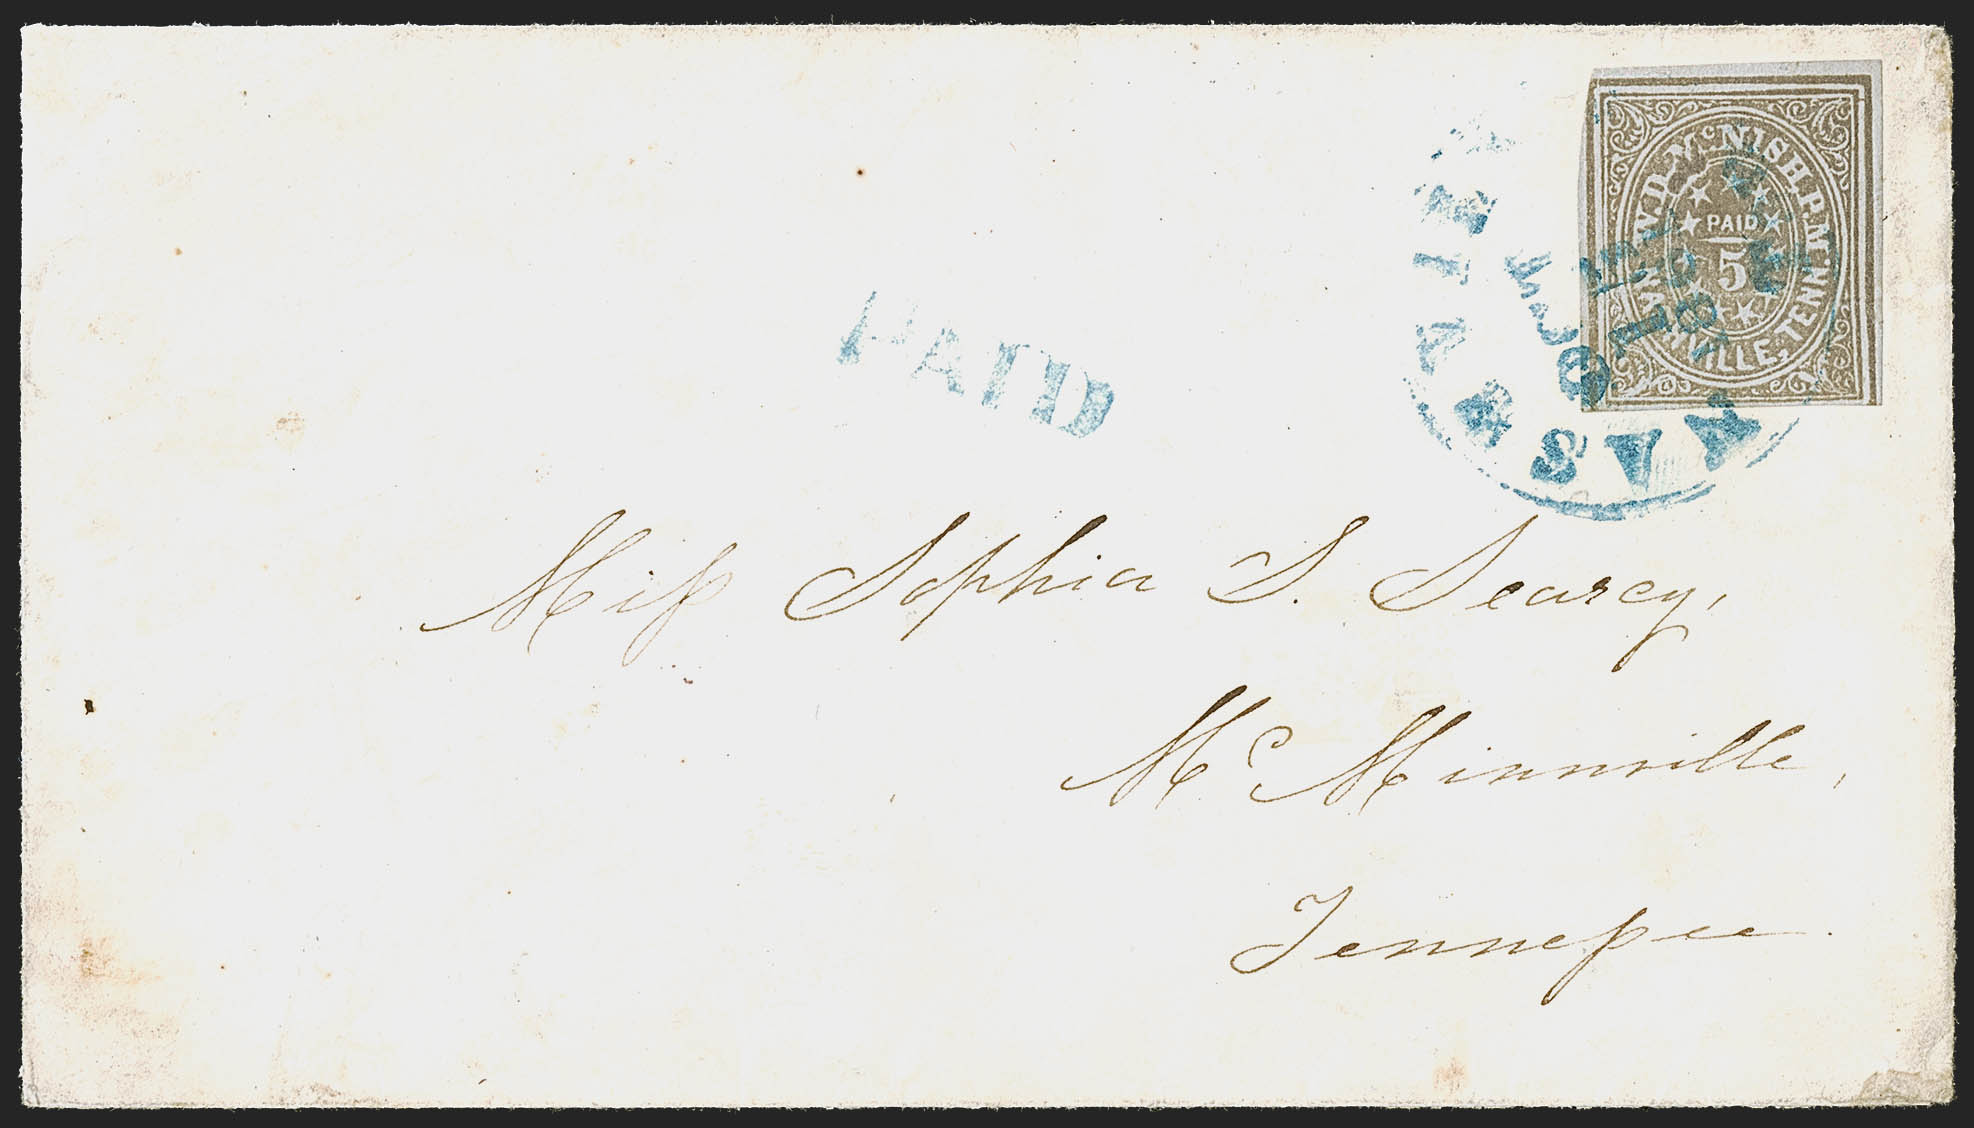 W.D. McNISH. P.M.
PAID
5
NASHVILLE, TENN.
NASHVILLE
PAID
Miſs Sophia S. Searcy,
Mc Minnville,
Tenneſsee.